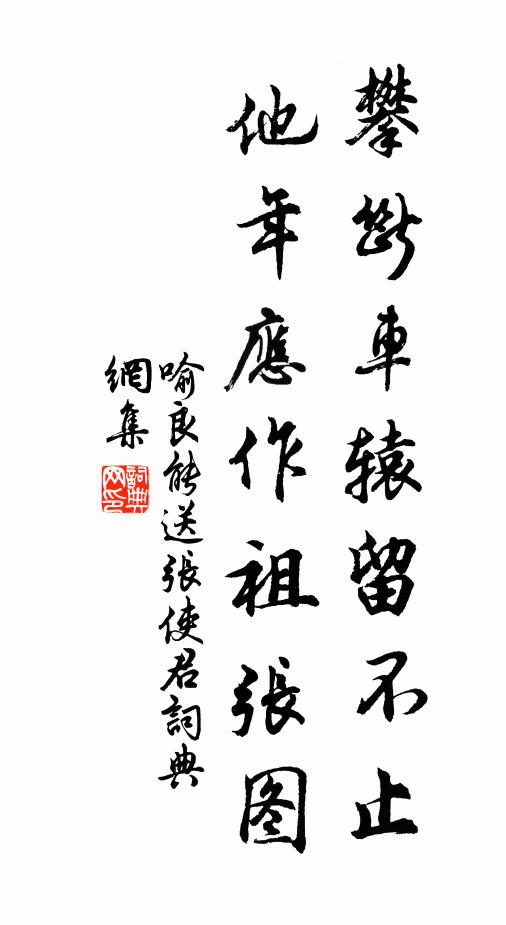 攀断車辕留不止
他年應作祖張图
喻良能送張使君詞典
網集
詞典网印